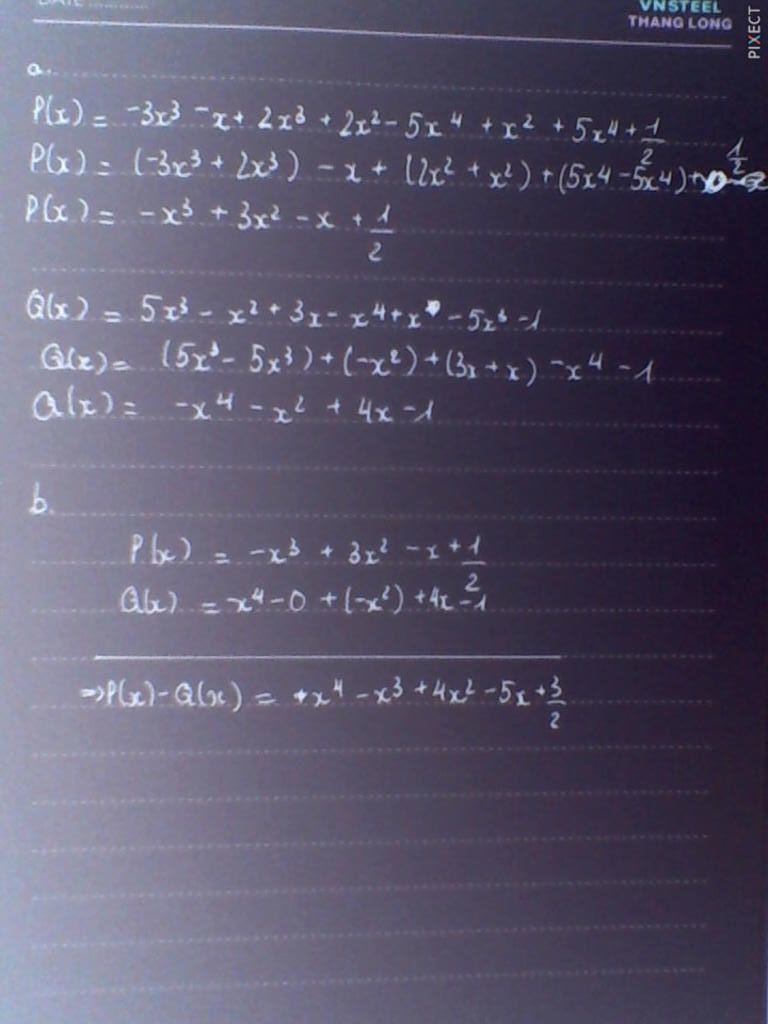 DATE ............
VNSTEEL
THANG LONG
PIXECT
a.
P(x) = -3x³ - x + 2x³ + 2x² - 5x⁴ + x² + 5x⁴ + 1/2
P(x) = (-3x³ + 2x³) - x + (2x² + x²) + (5x⁴ - 5x⁴) + 1/2
P(x) = -x³ + 3x² - x + 1/2
Q(x) = 5x³ - x² + 3x - x⁴ + x - 5x³ - 1
Q(x) = (5x³ - 5x³) + (-x²) + (3x + x) - x⁴ - 1
Q(x) = -x⁴ - x² + 4x - 1
b.
P(x) = -x³ + 3x² - x + 1/2
Q(x) = -x⁴ - 0 + (-x²) + 4x - 1
⇒ P(x) - Q(x) = +x⁴ - x³ + 4x² - 5x + 3/2